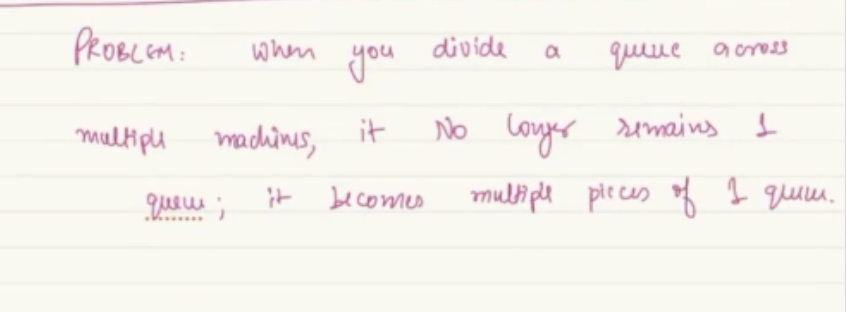 PROBLEM: When you divide a queue across
multiple machines, it No longer remains 1
queue; it becomes multiple pieces of 1 queue.